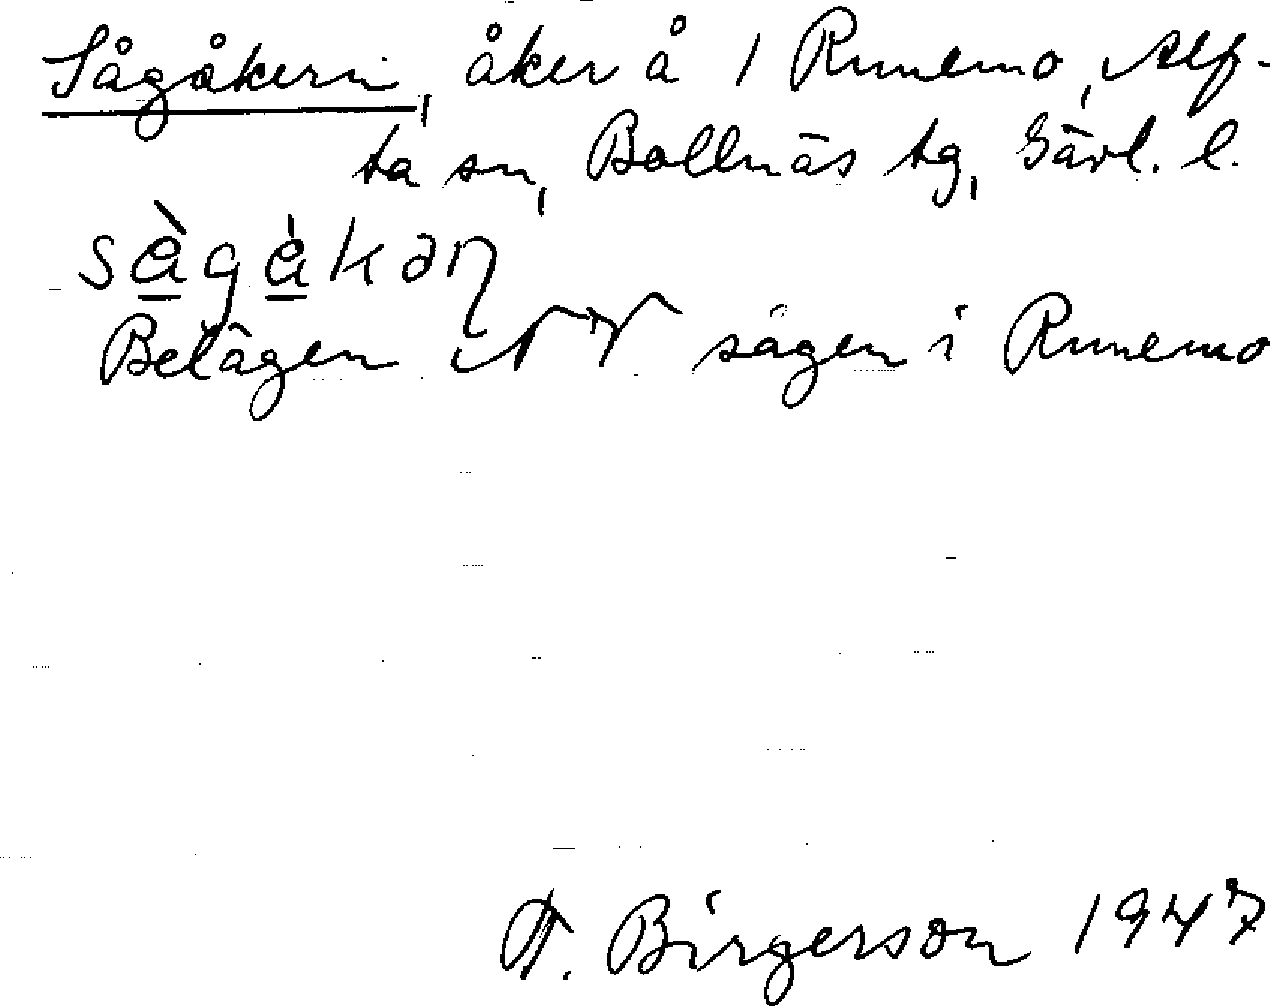 Sågåkern, åker å 1 Runemo, Alf-
ta sn, Bollnäs tg, Gävl. l.
Belägen vid sågen i Runemo
A. Birgerson 1947